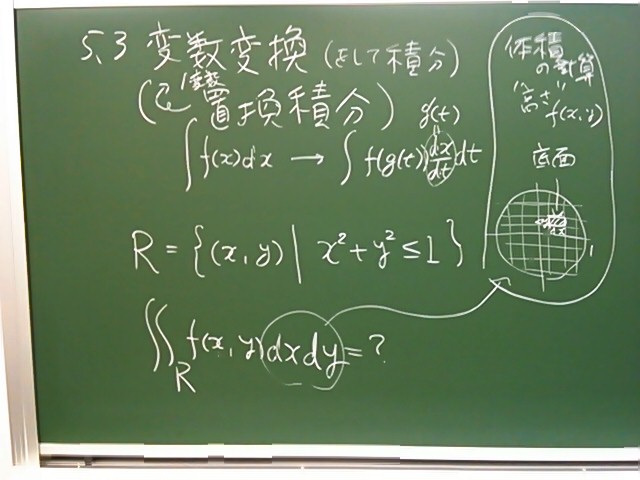 5.3 変数変換 (をして積分)
(で 1変数 置換積分)
g(t)
∫f(x)dx → ∫f(g(t)) dx/dt dt
R = {(x, y) | x² + y² ≤ 1}
∬_R f(x, y) dx dy = ?
体積
の計算
"高さ"
f(x, y)
底面
1